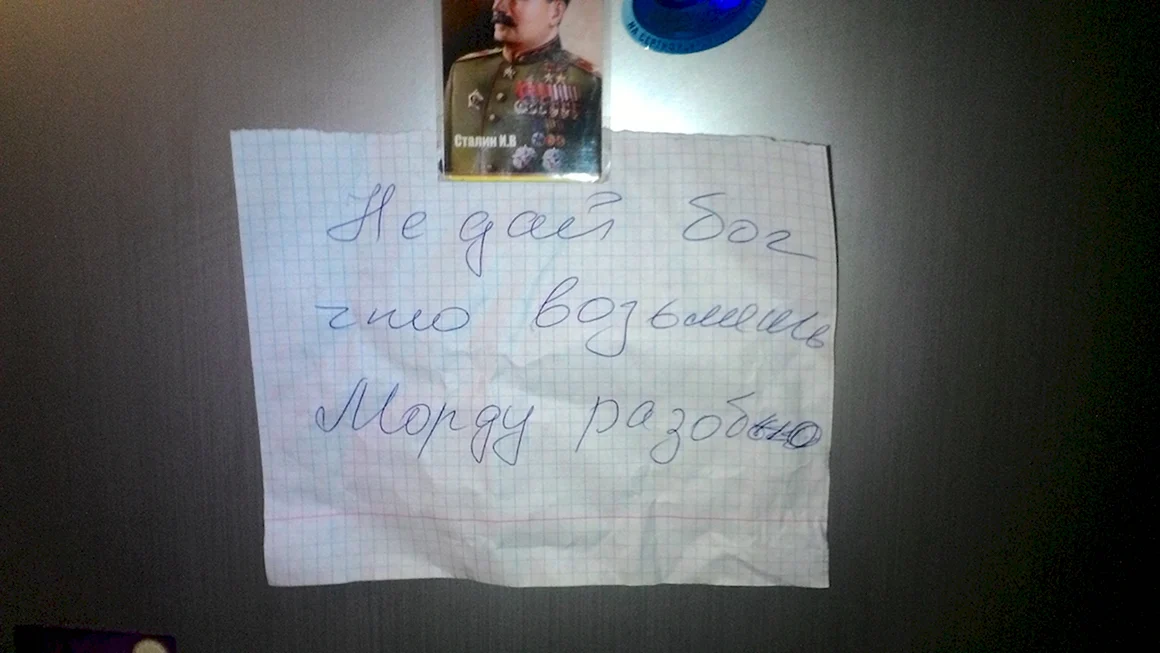 Сталин И.В
НА СЕРТИФИ
Не дай бог
что возьмешь
Морду разобью